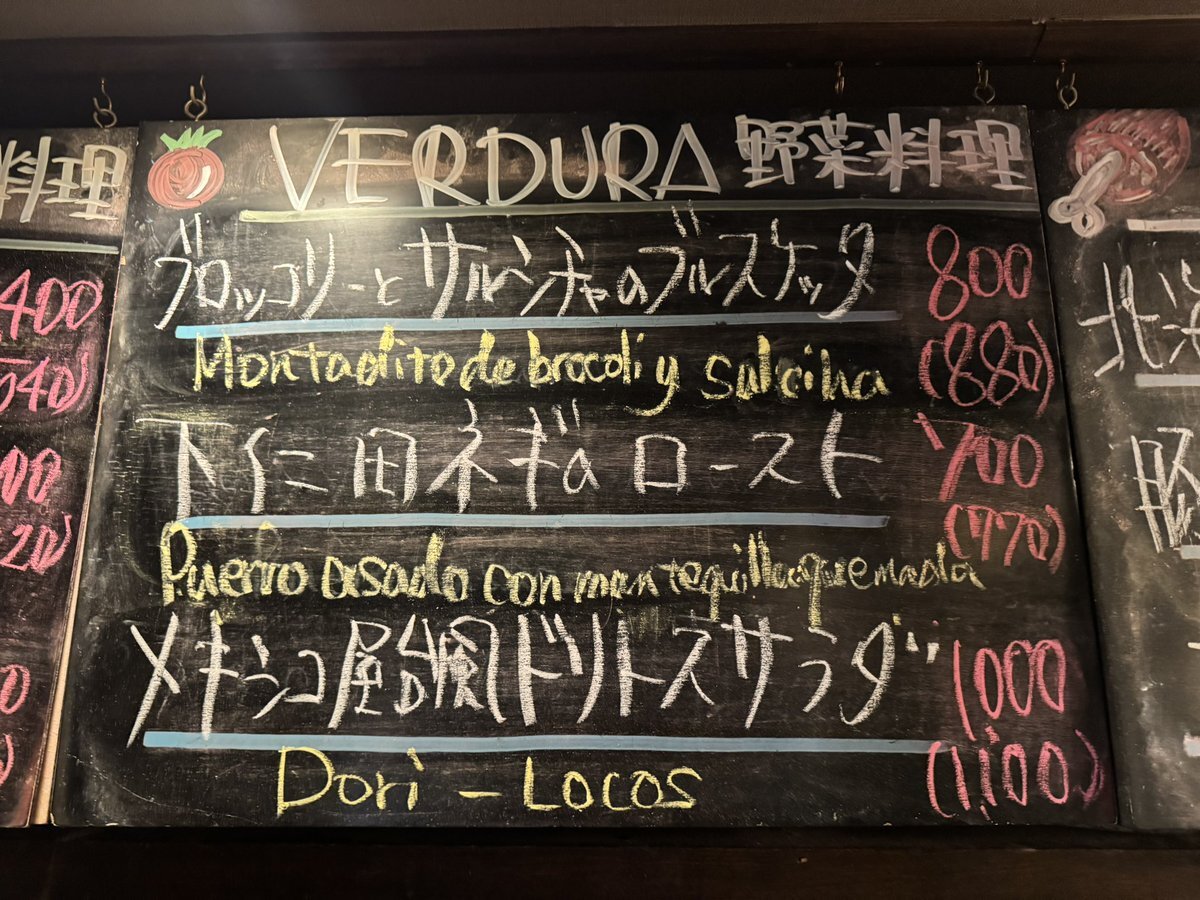 VERDURA 野菜料理
ブロッコリーとサルシチャのブルスケッタ 800
Montadito de brocoli y salciha (880)
下仁田ネギのロースト 700
(770)
Puerro asado con mantequilla quemada
メキシコ屋台験ドリトスサラダ 1000
Dori-Locos (1,100)
料理
400
540)
00
20)
0
)
北海
豚